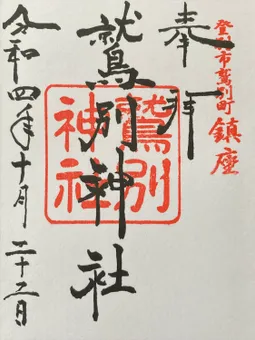 登別市鷲別町 鎮座
奉拝
鷲別神社
鷲別神社
令和四年十月二十二日